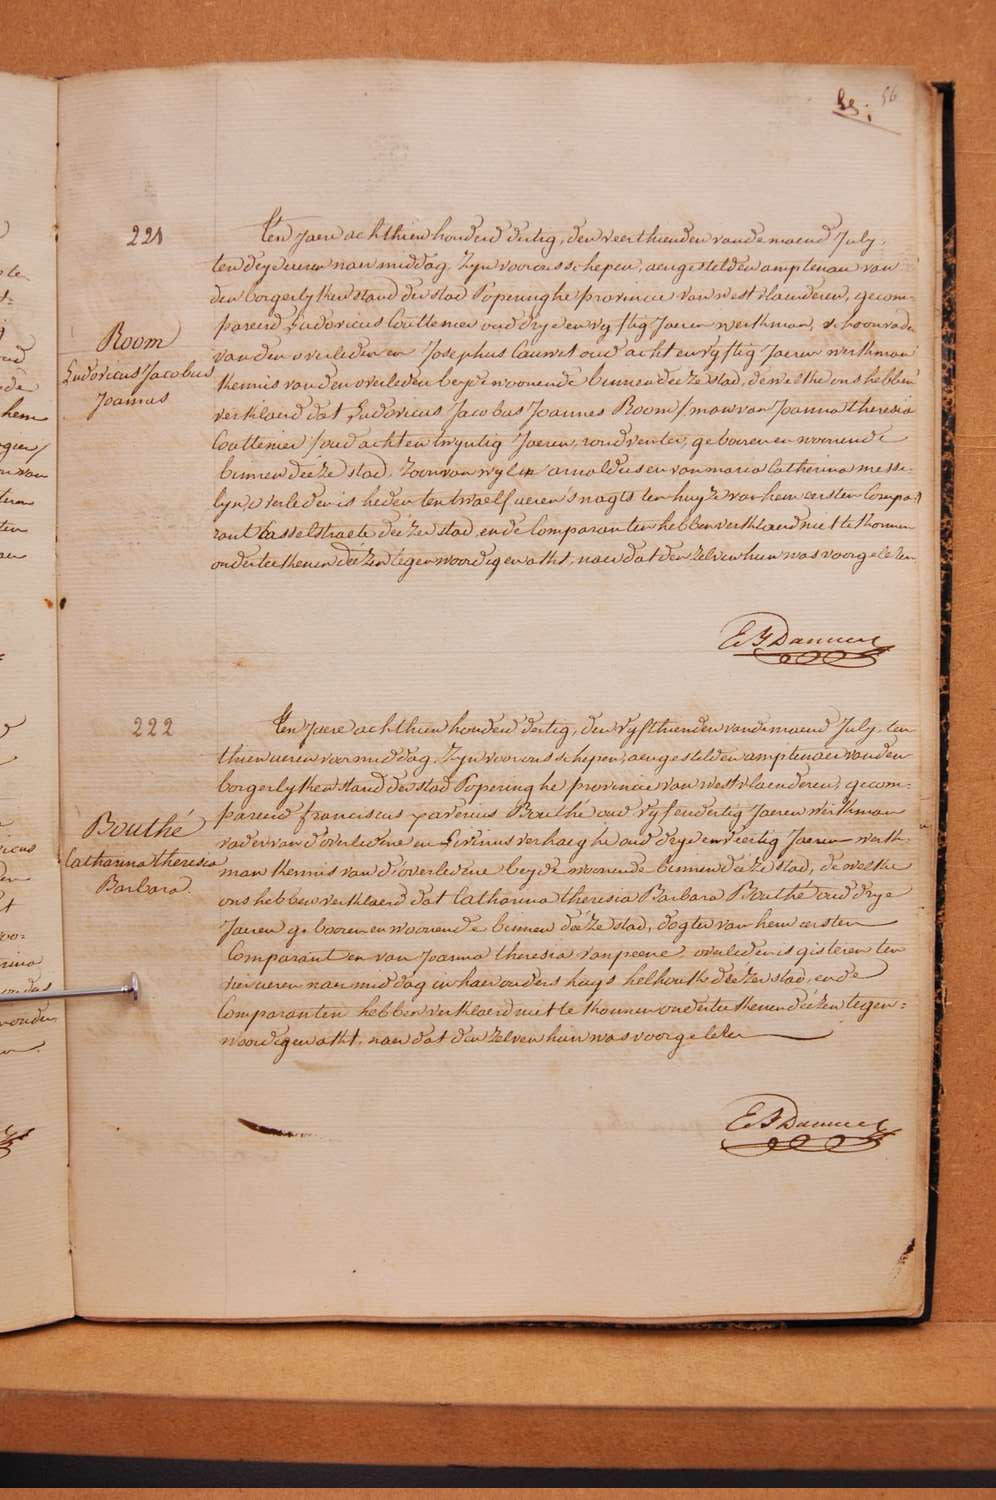 56
221
Room
Ludovicus Jacobus
Joannes
Ten Jaere achthien honderd dertig, den veerthienden van de maend July,
ten dry ueren naermiddag, Zyn voor ons schepen, aengestelden amptenaer van
den borgerlyken stand der stad Poperinghe provincie van west vlaenderen, gecom-
pareerd Ludovicus Couttenier oud drye en vyftig Jaeren werkman, schoonvader
van den overleden en Josephus Cauwet oud acht en vyftig Jaeren werkman
kennis van den overleden beyde woonende binnen deéze stad, dewelke ons hebben
verklaerd dat Ludovicus Jacobus Joannes Room /man van Joanna theresia
Couttenier/ oud acht en twyntig Jaeren, geboren en woonende
binnen deéze stad, Zoon van wylen arnoldus en van maria Catherina messe-
lyn, overleden is heden ten twaelf ueren 's nagts ten huyze van hem eersten Compa-
rant Casselstraete deéze stad, ende Comparanten hebben verklaerd niet te konnen
onderteekenen deézen tegenwoordigen akt, naer dat den zelven hun was voorgelezen
222
Bouthé
Catharina theresia
Barbara
Ten Jaere achthien honderd dertig, den vyfthienden van de maend July, ten
thien ueren voormiddag, Zyn voor ons schepen, aengestelden amptenaer van den
borgerlyken stand der stad Poperinghe provincie van westvlaenderen, gecom-
pareerd franciscus xaverius Bouthé oud vyf en dertig Jaeren werkman
vader van d'overledene en Livinus verhaeghe oud drye en veertig Jaeren werk-
man kennis van d'overledene beyde woonende binnen deéze stad, dewelke
ons hebben verklaerd dat Catharina theresia Barbara Bouthé oud drye
Jaeren geboren en woonende binnen deéze stad, dogter van hem eersten
Comparant en van Joanna theresia vanpeene, overleden is gisteren ten
vier ueren naermiddag in haer ouders huys helhoek deéze stad, ende
Comparanten hebben verklaerd niet te konnen onderteekenen deézen tegen-
woordigen akt, naer dat den zelven hun was voorgelezen